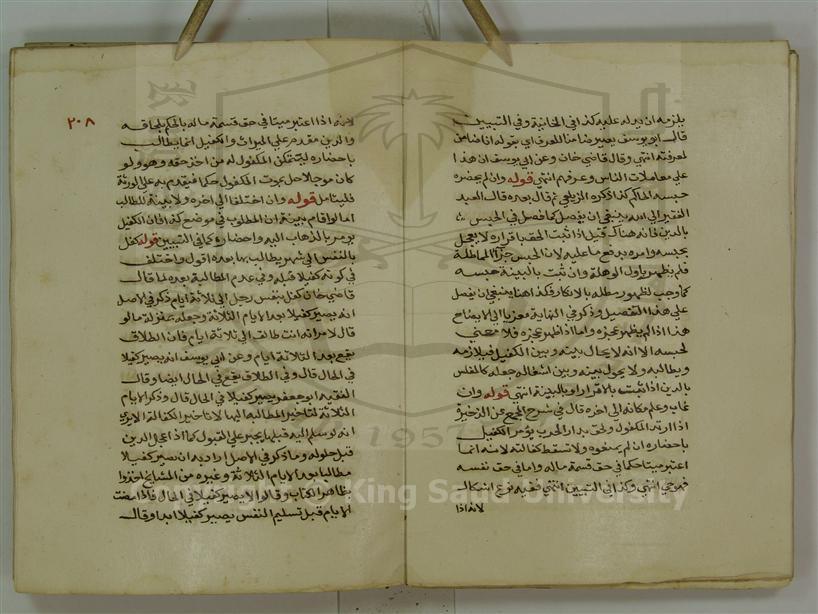 يلزمه ان يدله عليه كذا في الخانية وفي التبيين
قال ابو يوسف يصير ضامنا للعرف اي بقوله انا ضامن
لمعرفته انتهى وقال قاضي خان وعن ابي يوسف ان هذا
على معاملات الناس وعرفهم انتهى قوله وان لم يحضره
حبسه الحاكم كذا ذكره الزيلعي ثم قال بعده قال العبد
الفقير الى الله ينبغي ان يفصل كما فصل في الحبس
بالدين فانه هناك قيل اذا ثبت الحق باقراره لا يعجل
بحبسه وامره بدفع ما عليه لان الحبس جزاء المماطلة
فلم يظهر باول الوهلة وان ثبت بالبينة حبسه
كما وجب لظهور مطله بالانكار فكذا هنا ينبغي ان يفصل
على هذا التفصيل وذكر في النهاية معزيا الى الايضاح
هذا اذا لم يظهر عجزه واما اذا ظهر عجزه فلا معنى
لحبسه الا انه لا يحال بينه وبين الكفيل فيلازمه
ويطالبه ولا يحول بينه وبين اشغاله جعله كالمفلس
بالدين اذا ثبت بالاقرار او بالبينة انتهى قوله وان
غاب وعلم مكانه الى اخره قال في شرح المجمع عن الذخيرة
اذا ارتد المكفول ولحق بدار الحرب يؤمر الكفيل
باحضاره ان لم يمنعوه ولا تسقط كفالته لانه انما
اعتبر ميتا حكما في حق قسمة ماله واما في حق نفسه
فهو حي انتهى وكذا في التبيين انتهى ففيه نوع اشكال
لانه اذا
٢٠٨
لانه اذا اعتبر ميتا في حق قسمة ماله بالحكم بلحاقه
والدين مقدم على الميراث والكفيل انما يطالب
باحضاره ليتمكن المكفول له من اخذ حقه وهو ولو
كان موجلا حل بموت المكفول حكما فيقدم به على الورثة
فليتامل قوله وان اختلفا الى اخره ولا بينة للطالب
اما لو اقام بينة ان المطلوب في موضع كذا فان الكفيل
يومر بالذهاب اليه واحضاره كما في التبيين قوله كفل
بالنفس الى شهر يطالب بما بعده اقول واختلف
في كونه كفيلا قبله وفي عدم المطالبة بعده لما قال
قاضي خان كفل بنفس رجل الى ثلاثة ايام ذكر في الاصل
انه يصير كفيلا بعد الايام الثلاثة وجعله بمنزلة ما لو
قال لامراته انت طالق الى ثلاثة ايام فان الطلاق
يقع بعد الثلاثة ايام وعن ابي يوسف انه يصير كفيلا
في الحال قال وفي الطلاق يقع في الحال ايضا وقال
الفقيه ابو جعفر يصير كفيلا في الحال قال وذكر الايام
الثلاثة لتاخير المطالبة اليها لا لتاخير الكفالة الا يرى
انه لو سلم اليه قبلها يجبر على القبول كما اذا عجل الدين
قبل حلوله وما ذكر في الاصل اراد به ان يصير كفيلا
مطالبا بعد الايام الثلاثة وغيره من المشايخ اخذوا
بظاهر الكتاب وقالوا لا يصير كفيلا في الحال فاذا مضت
الايام قبل تسليم النفس يصير كفيلا ابدا وقال
1957
Copyright © King Saud University